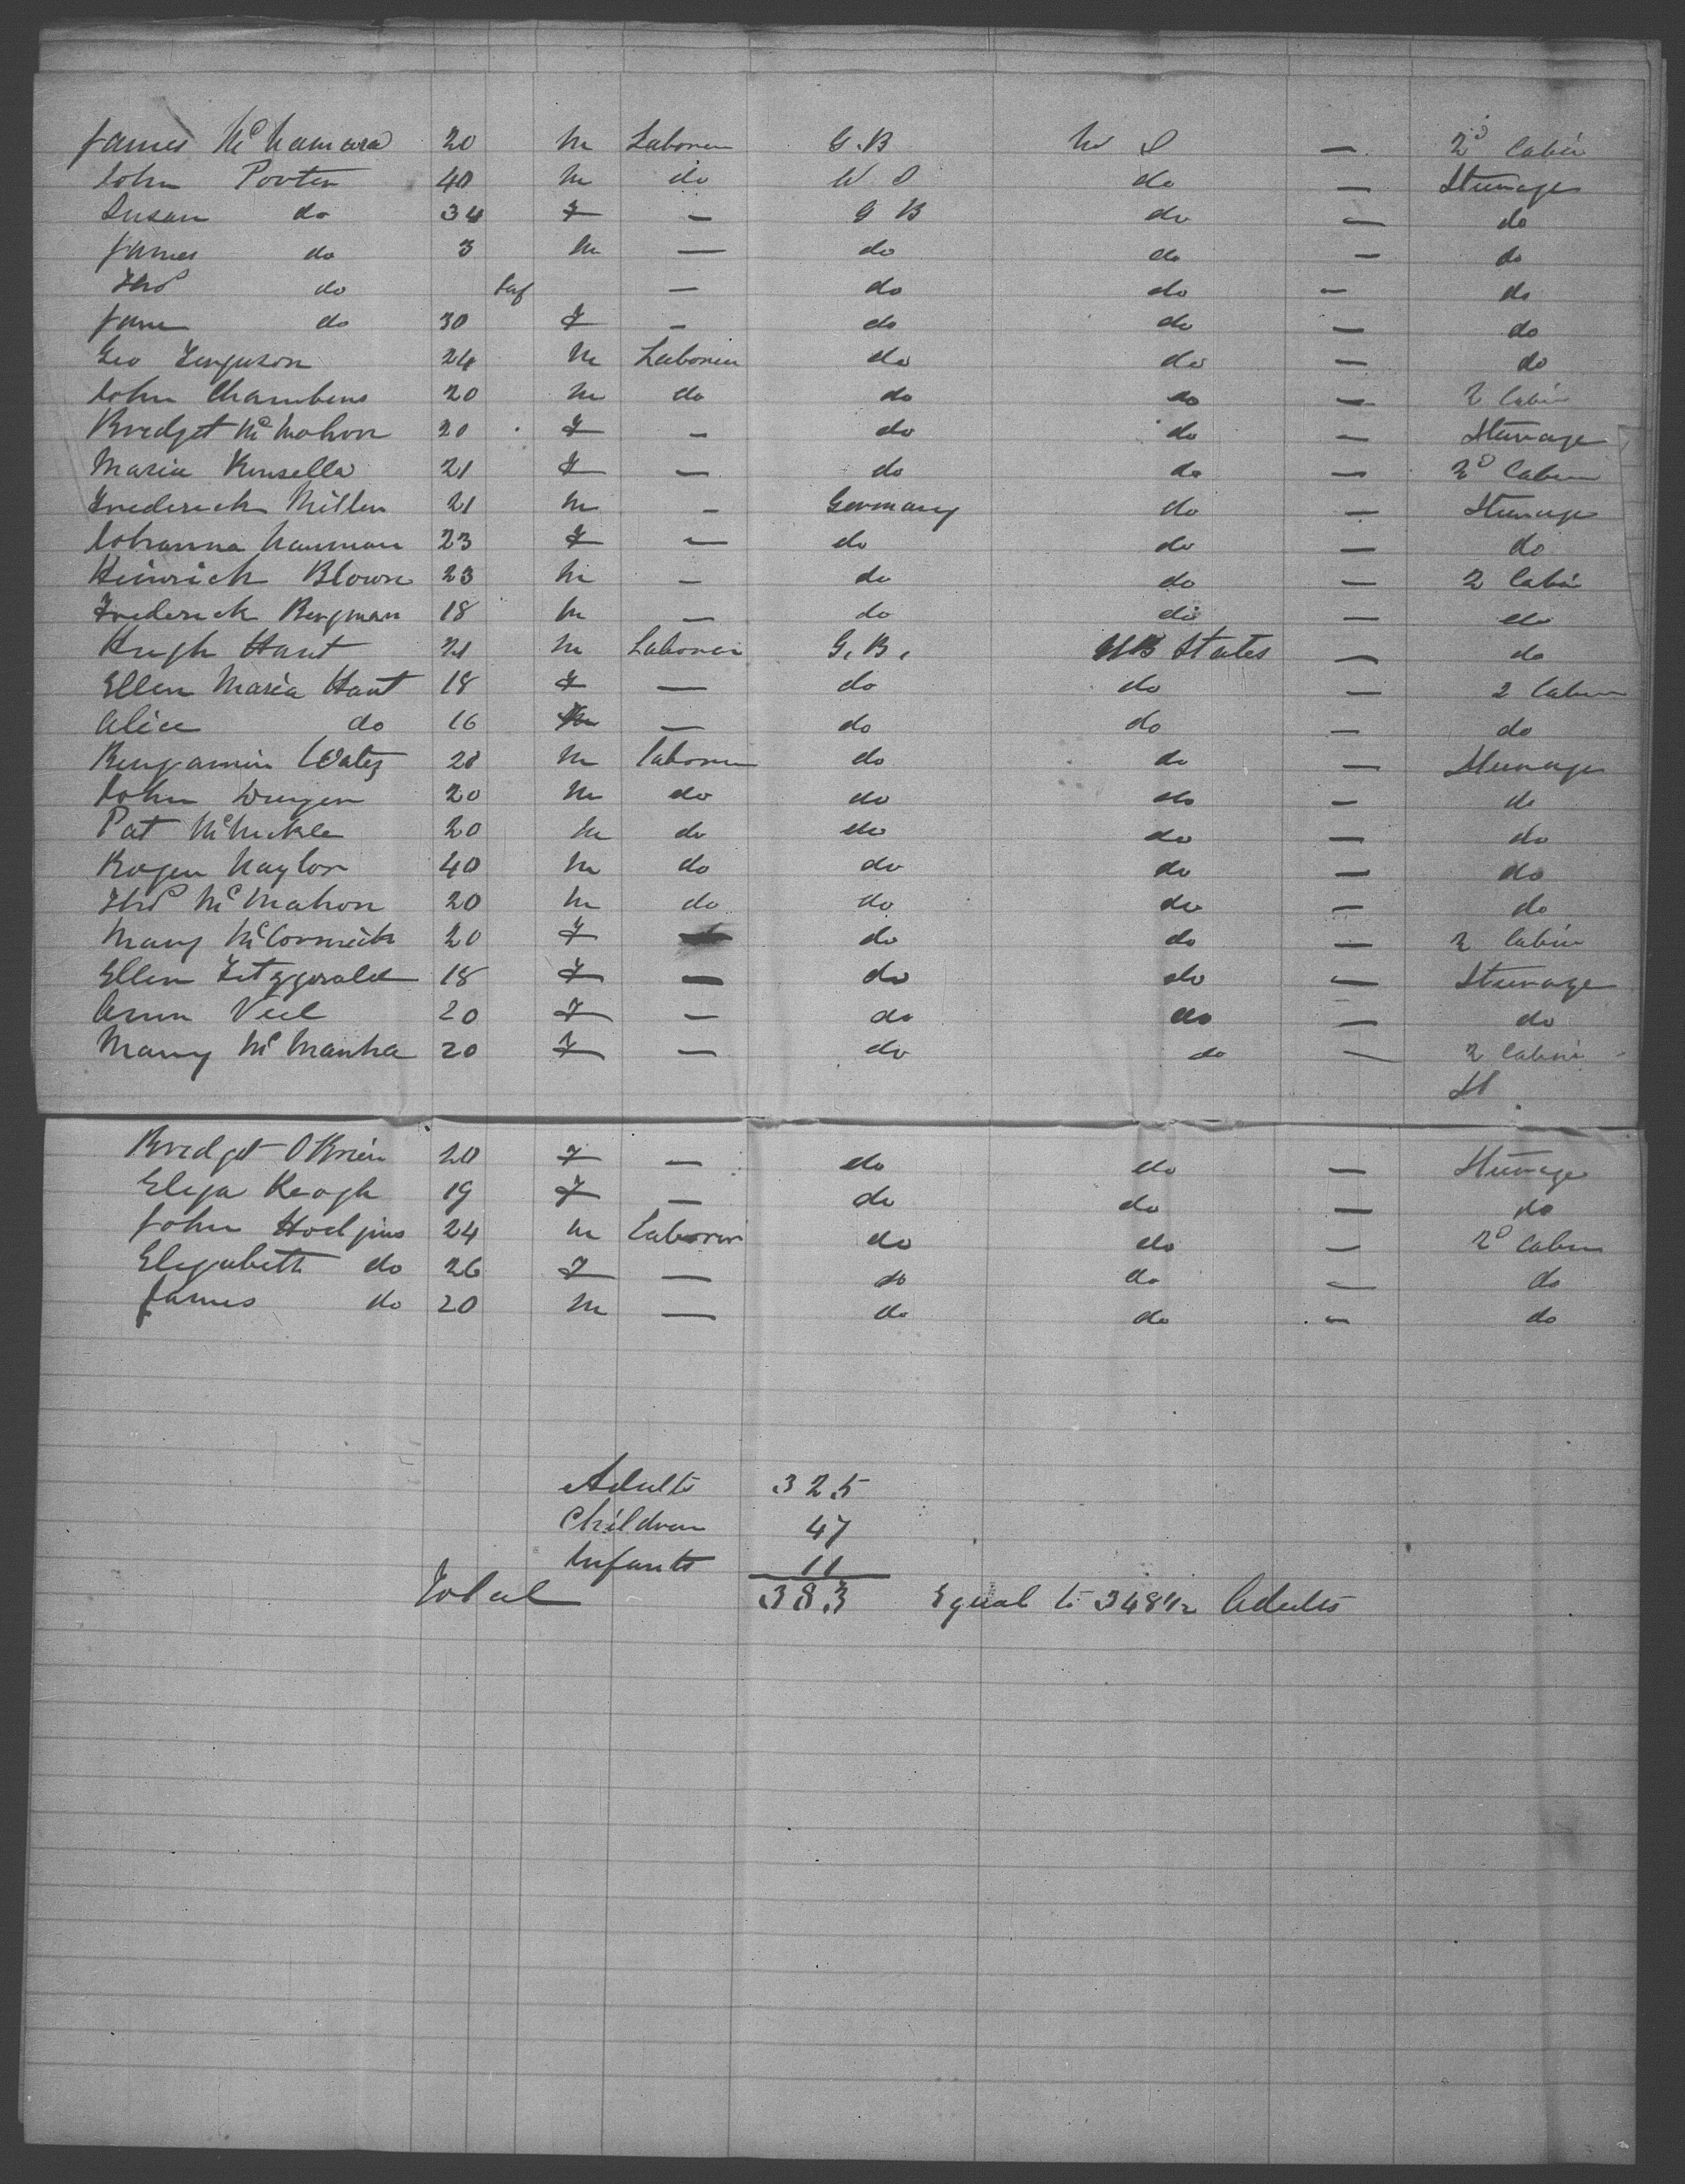 James McNamara 20 M Laborer G.B U S — 2d Cabin
John Porter 40 M do U S do — Steerage
Susan do 34 F — G B do — do
James do 3 M — do do — do
Thos do Inf — do do — do
Jane do 30 F — do do — do
Geo Ferguson 24 M Laborer do do — do
John Chambers 20 M do do do — 2 Cabin
Bridget McMahon 20 F — do do — Steerage
Maria Kinsella 21 F — do do — 2d Cabin
Frederick Miller 21 M — Germany do — Steerage
Johanna Nauman 23 F — do do — do
Heinrich Blown 23 M — do do — 2 Cabin
Frederick Bergman 18 M — do do — do
Hugh Hart 21 M Laborer G. B. States — do
Ellen Maria Hart 18 F — do do — 2 Cabin
Alice do 16 — do do — do
Benjamin 20 M Laborer do do — Steerage
John 20 M do do do — do
Pat McNickle 20 M do do do — do
Roger Naylor 40 M do do do — do
Thos McMahon 20 M do do do — do
Mary McCormick 20 F — do do — 2 Cabin
Ellen Fitzgerald 18 F — do do — Steerage
Ann Veil 20 F — do do — do
Mary 20 F — do do — 2 Cabin
St
Bridget OBrien 20 F — do do — Steerage
Eliza Keogh 19 F — do do — do
John Hodgins 24 M Laborer do do — 2d Cabin
Elizabeth do 26 F — do do — do
James do 20 M — do do — do
Adults 325
Children 47
Infants 11
Total 383 Equal to 348 1/2 Adults